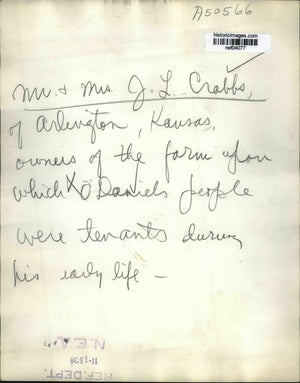 A50566
historicimages.com
nef04077
Mr. & Mrs. J. L. Crabbs,
of Arlington, Kansas,
owners of the farm upon
which O'Daniels people
were tenants during
his early life -
N.E.A.
REF. DEPT.